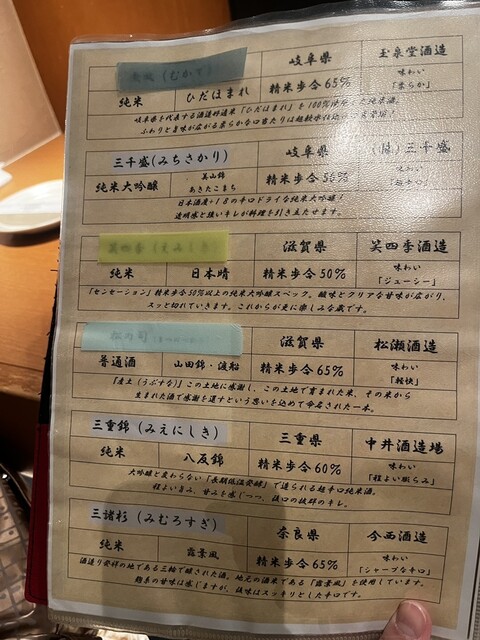 (むかで)
岐阜県
玉泉堂酒造
純米
ひだほまれ
精米歩合65%
味わい
「柔らか」
岐阜県を代表する酒造好適米「ひだほまれ」を100%使用した純米酒。
ふわりと旨味が広がる柔らかな口当たりは超軟水仕込
三千盛(みちさかり)
岐阜県
(株)三千盛
純米大吟醸
美山錦
あきたこまち
精米歩合50%
味わい
「超辛口」
日本酒度+18の辛口ドライな純米大吟醸!
透明感と強いキレが料理を引き立たせます。
笑四季(えみしき)
滋賀県
笑四季酒造
純米
日本晴
精米歩合50%
味わい
「ジューシー」
「センセーション」精米歩合50%以上の純米大吟醸スペック。酸味とクリアな甘味が広がり、
スッと切れていきます。これからが更に楽しみな蔵です。
松の司
滋賀県
松瀬酒造
普通酒
山田錦・渡船
精米歩合65%
味わい
「軽快」
「産土(うぶすな)」この土地に感謝し、この土地で育まれた米、その米から
生まれた酒で感謝を還すという思いを込めて命名された一本。
三重錦(みえにしき)
三重県
中井酒造場
純米
八反錦
精米歩合60%
味わい
「程よい膨らみ」
大吟醸と変わらない「長期低温発酵」で造られる超辛口純米酒。
程よい旨み、甘みを感じつつ、後口の抜群のキレ。
三諸杉(みむろすぎ)
奈良県
今西酒造
純米
露葉風
精米歩合65%
味わい
「シャープな辛口」
酒造り発祥の地である三輪で醸された酒。地元の酒米である「露葉風」を使用しています。
麹系の甘味は感じますが、後味はスッキリとした辛口です。